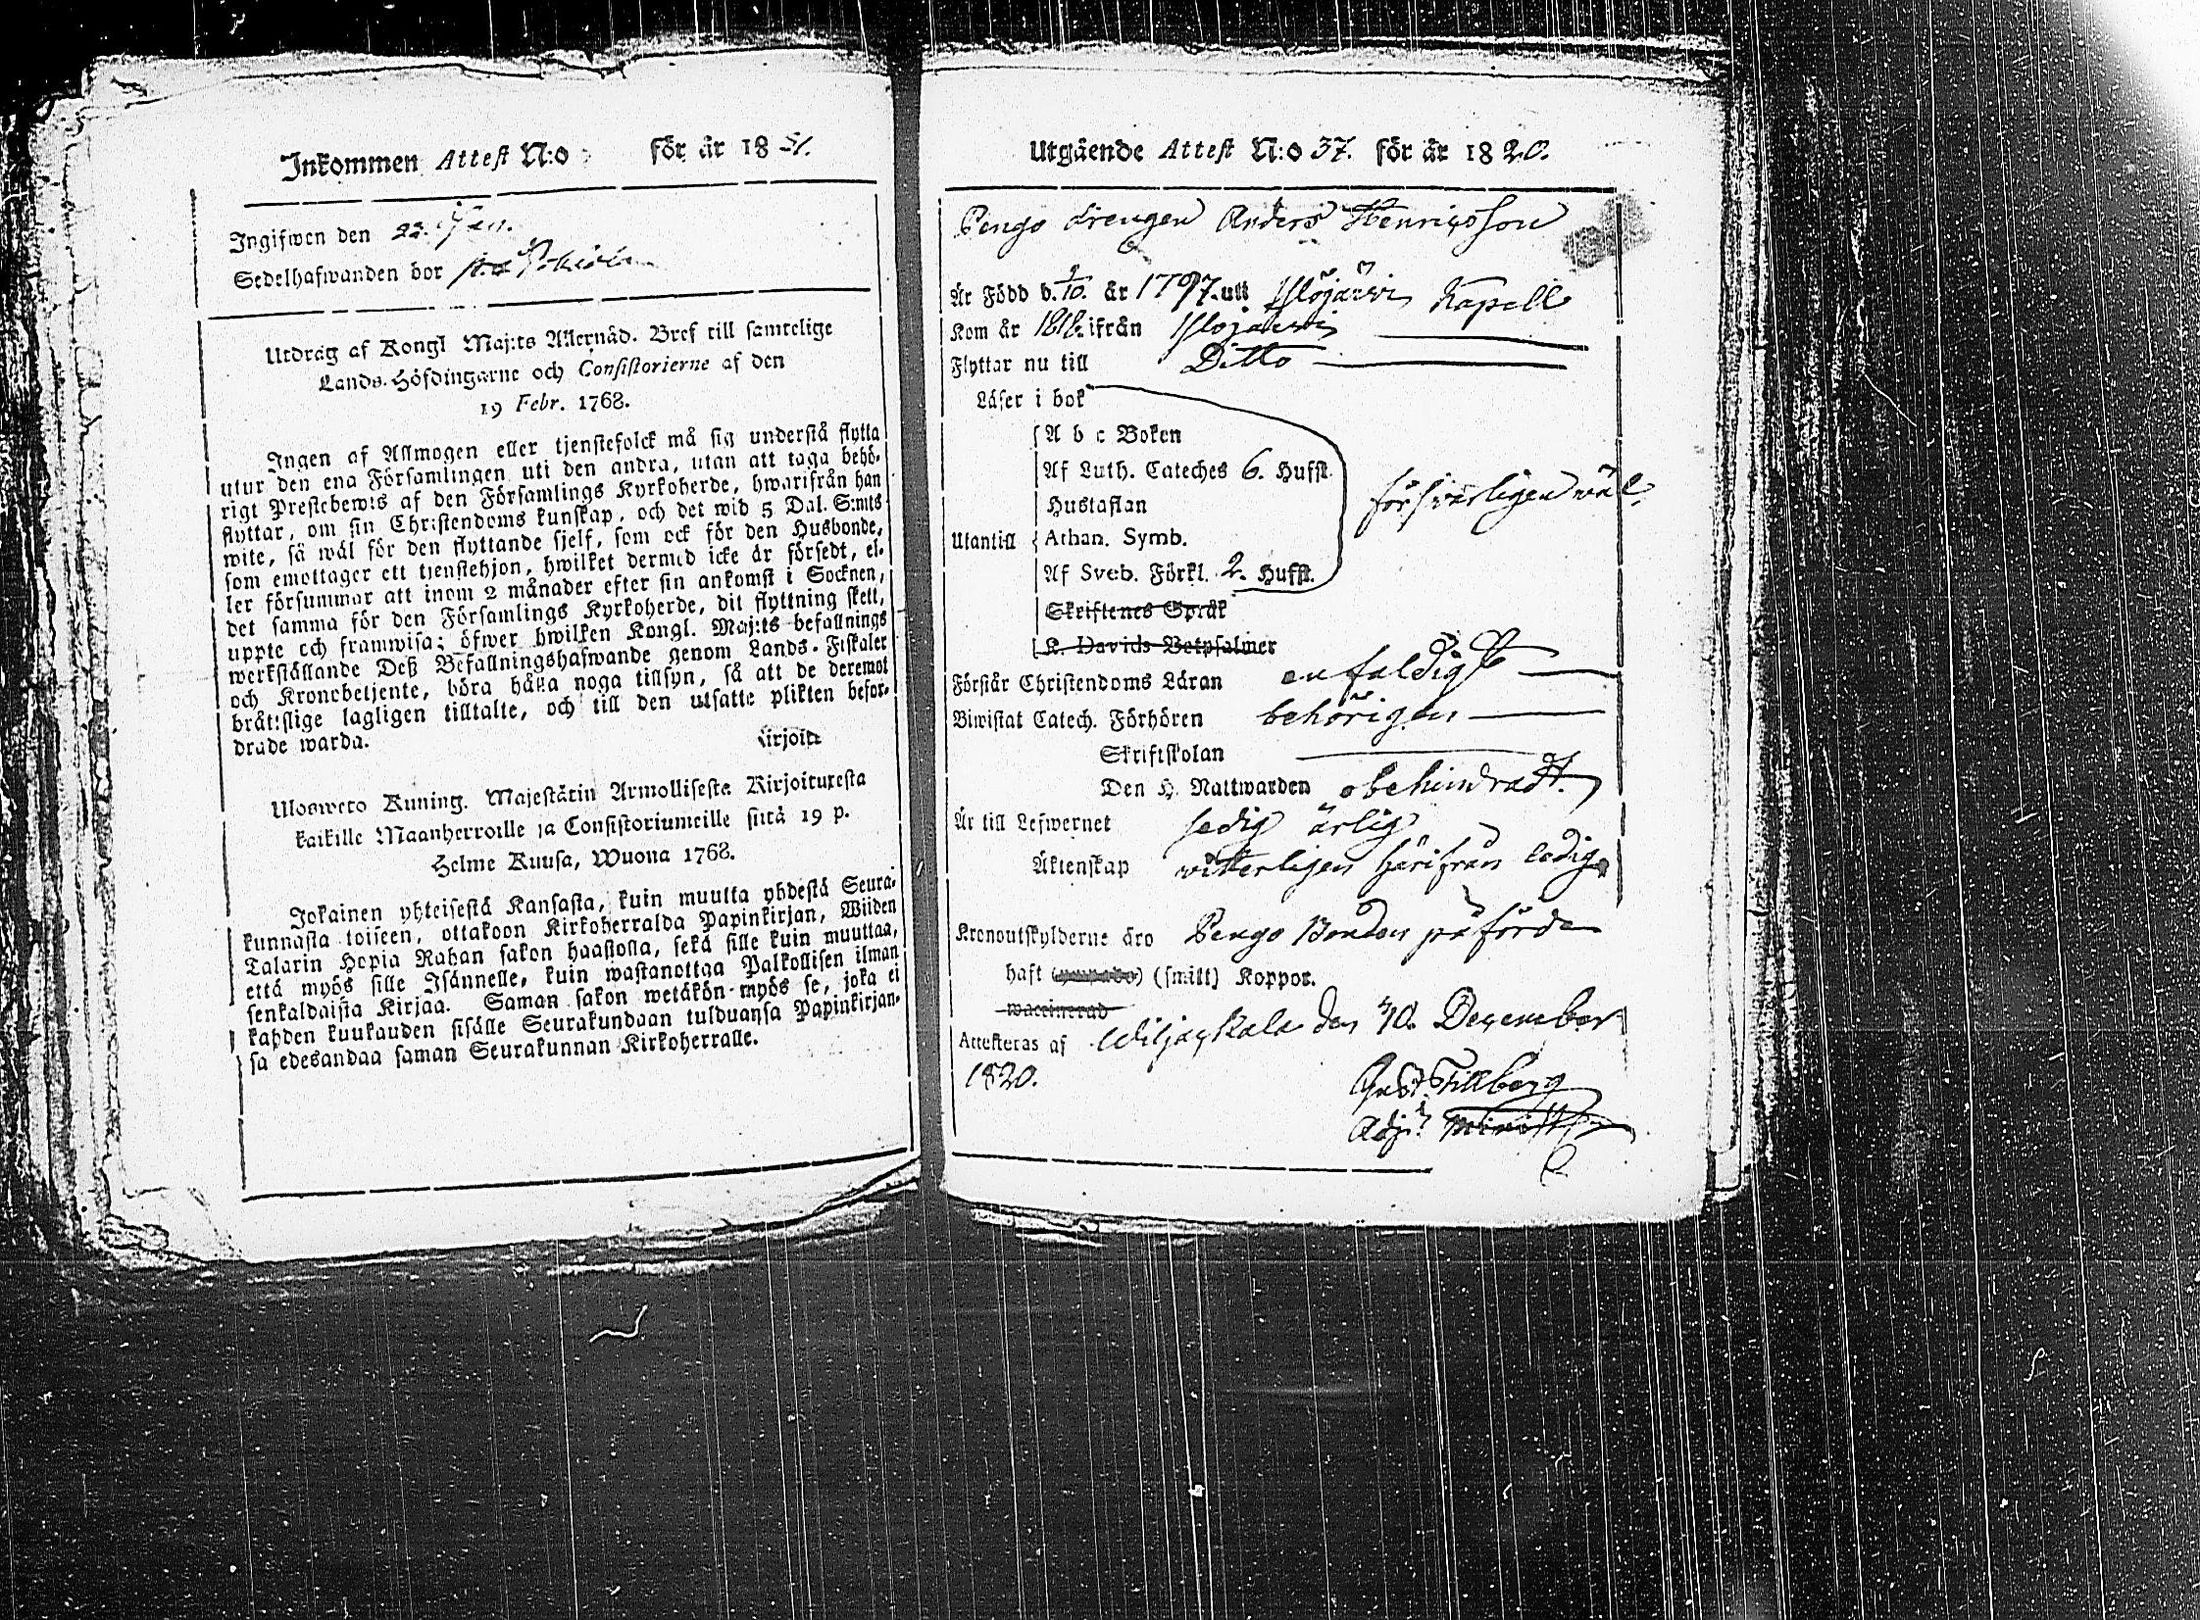 Inkommen Attest N:o för år 1821.
Ingifwen den 22. Jan.
Sedelhafwanden bor
Utdrag af Kongl Maj:ts Allernåd. Bref till samtelige
Lands-Höfdingarne och Consistorierne af den
19 Febr. 1768.
Ingen af Allmogen eller tjenstefolck må sig understå flytta
utur den ena Församlingen uti den andra, utan att taga behö-
rigt Prestebewis af den Församlings Kyrkoherde, hwarifrån han
flyttar, om sin Christendoms kunskap, och det wid 5 Dal. S:mts
wite, så wäl för den flyttande sjelf, som ock för den Husbonde,
som emottager ett tjenstehjon, hwilket dermed icke är försedt, el-
ler försummar att inom 2 månader efter sin ankomst i Socknen,
det samma för den Församlings Kyrkoherde, dit flyttning skett,
uppte och framwisa; öfwer hwilken Kongl. Maj:ts befallnings
werkställande Deß Befallningshafwande genom Lands-Fiskaler
och Kronobetjente, böra hålla noga tillsyn, så att de deremot
bråttslige lagligen tilltalte, och till den utsatte plikten befor-
drade warda.
Kirjoite
Uloswero Kuning. Majestätin Armollisesta Kirjoituresta
kaikille Maanherroille ja Consistoriumeille siitä 19 p.
Helme Kuusa, Wuona 1768.
Jokainen yhteisestä Kansasta, kuin muutta yhdestä Seura-
kunnasta toiseen, ottakoon Kirkoherralda Papinkirjan, Wiiden
Talarin Hopia Rahan sakon haastolla, sekä sille kuin muuttaa,
että myös sille Isännelle, kuin wastanottaa Palkollisen ilman
senkaldaista Kirjaa. Saman sakon wetäkön myös se, joka ei
kahden kuukauden sisälle Seurakundaan tulduansa Papinkirjan-
sa edesandaa saman Seurakunnan Kirkoherralle.
Utgående Attest N:o 37. för år 1820.
Pengo drengen Anders Henricsson
Är Född d. 9/10. år 1797. utt Ylöjärwi Kapell
Kom år 1818. ifrån Ylöjärwi
Flyttar nu till Ditto
Läser i bok
A b c Boken
Af Luth. Cateches 6. Hufst.
försvarligen wäl.
Hustaflan
Utantill Athan. Symb.
Af Sveb. Förkl. 2. Hufst.
Skriftenes Språk
K. Davids Botpsalmer
Förstår Christendoms Läran enfaldigt
Biwistat Catech. Förhören behörigen
Skriftskolan
Den H. Nattwarden obehindradt.
Är till Lefwernet sedig ärlig
Äktenskap witterligen härifrån ledig
Kronoutskylderne äro Pengo Bonden påförde
haft (smitt) Koppor.
waccinerad
Attesteras af Wiljackala den 10. December
1820.
Gust. Tillberg
Adj:t